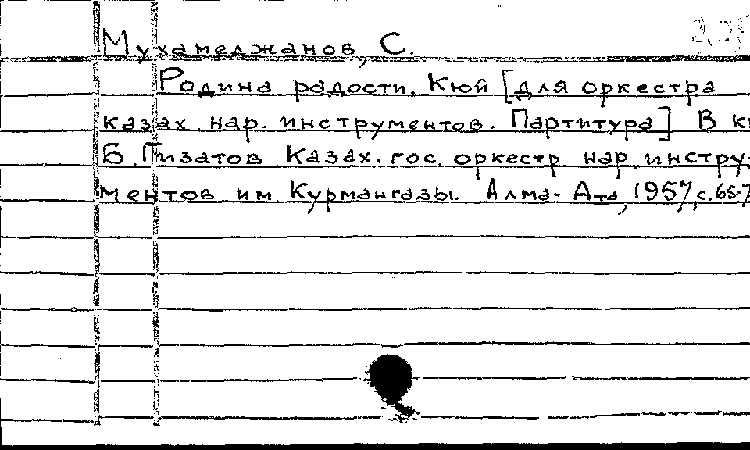 Мухамеджанов, С.
Родина радости. Кюй [для оркестра
казах. нар. инструментов. Партитура] В к
Б. Гизатов Казах. гос. оркестр нар. инстру-
ментов им. Курмангазы. Алма-Ата, 1957, с. 65-7